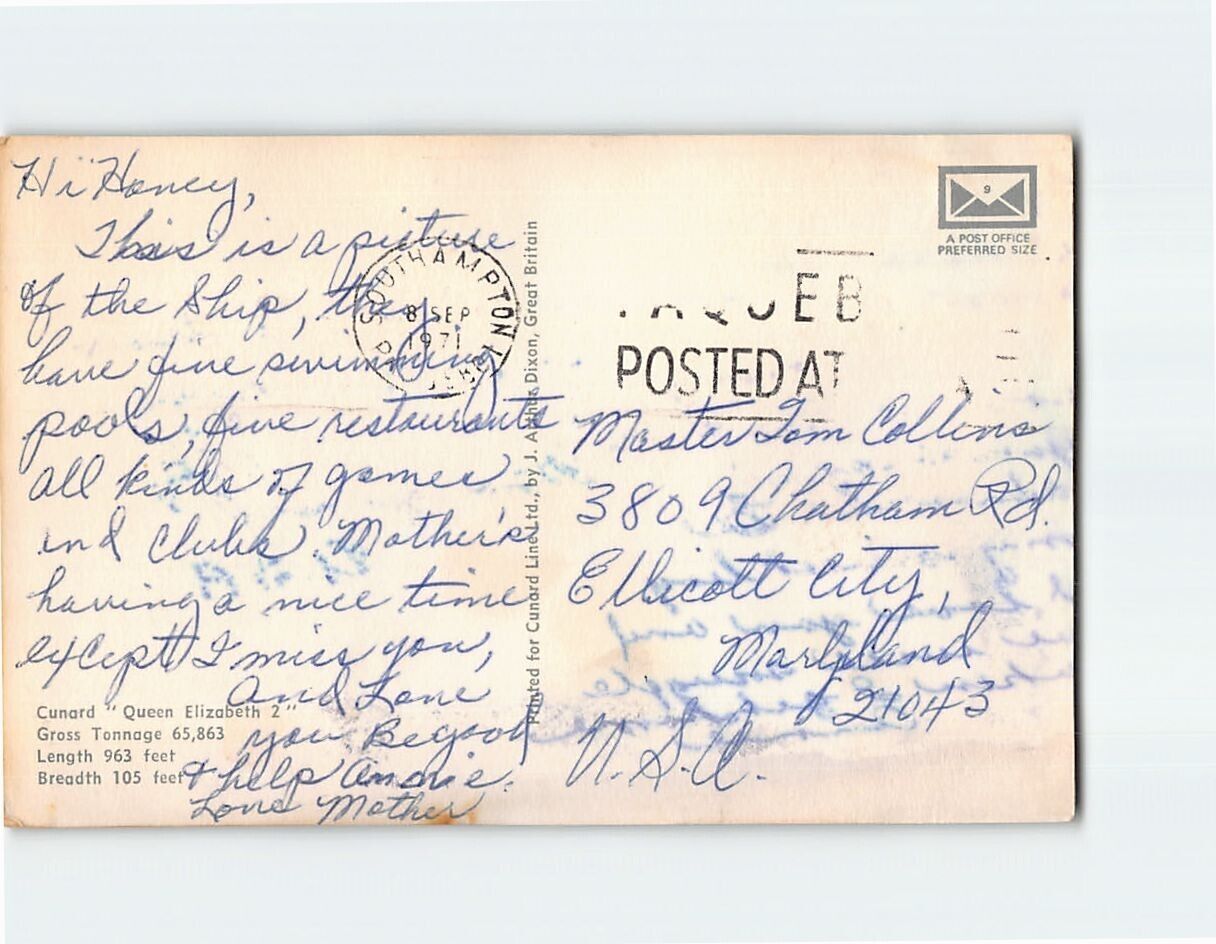 Hi Honey,
This is a picture
of the Ship, they
have fine swimming
pools, fine restaurants
all kinds of games
and Clubs. Mother's
having a nice time
except I miss you,
and Love
you Be good
& help Annie.
Love Mother
Cunard "Queen Elizabeth 2"
Gross Tonnage 65,863
Length 963 feet
Breadth 105 feet
SOUTHAMPTON
8 SEP
1971
Printed for Cunard Line Ltd., by J. Arthur Dixon, Great Britain
9
A POST OFFICE
PREFERRED SIZE
POSTED AT
Master Tom Collins
3809 Chatham Rd.
Ellicott City,
Maryland
21043
U.S.A.